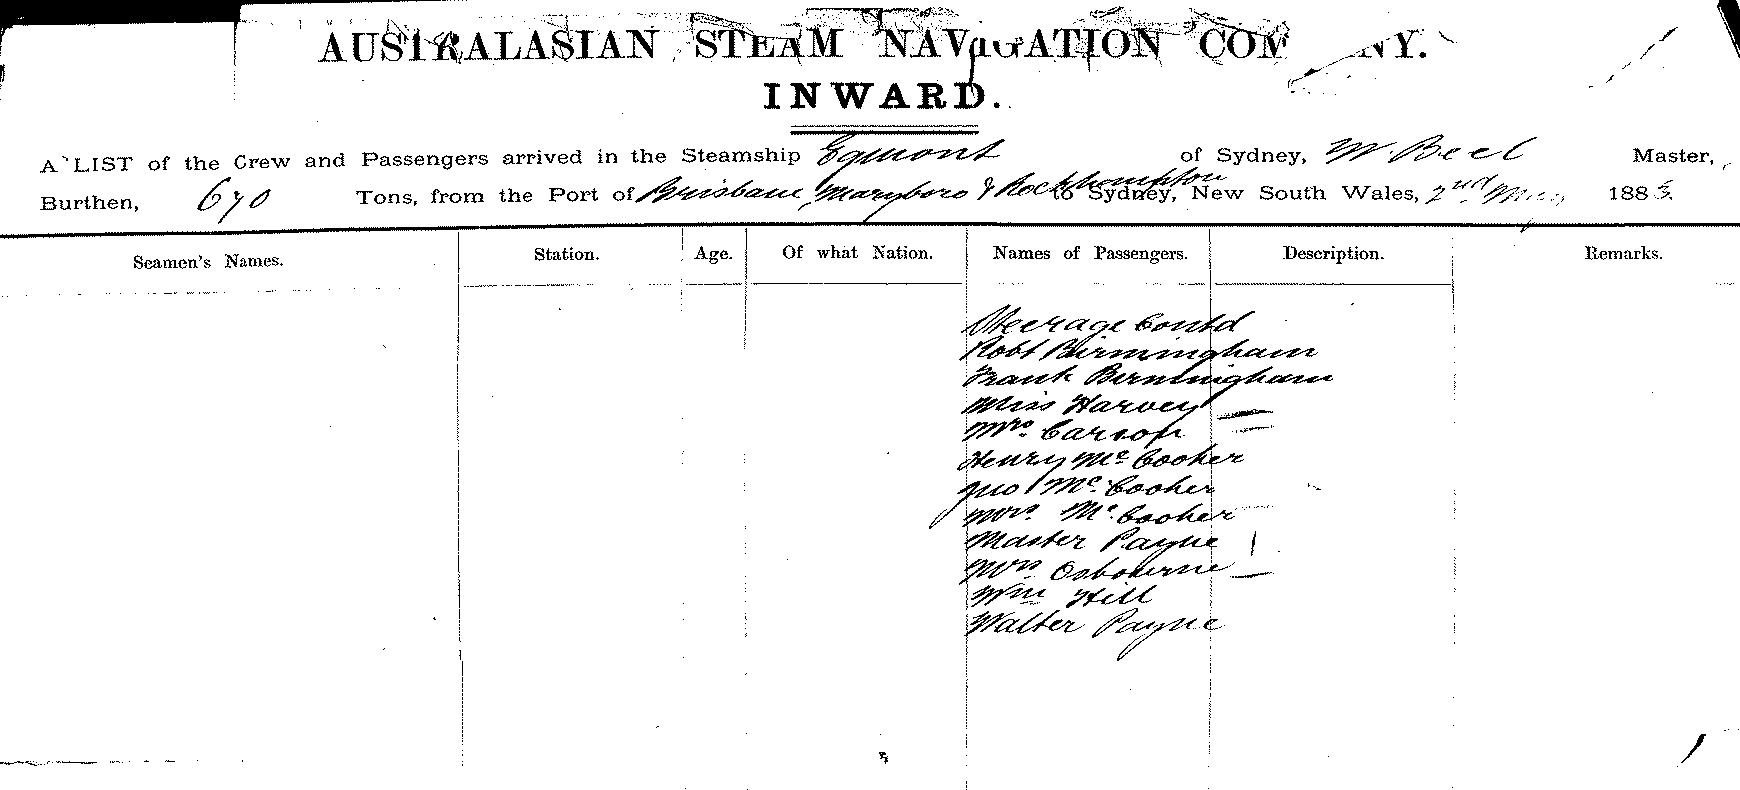 AUSTRALASIAN STEAM NAVIGATION COMPANY.
INWARD.
A LIST of the Crew and Passengers arrived in the Steamship Egmont of Sydney, W. Beel Master,
Burthen, 670 Tons, from the Port of Brisbane, Maryboro & Rockhampton to Sydney, New South Wales, 2nd May 188
Seamen's Names. Station. Age. Of what Nation. Names of Passengers. Description. Remarks.
Steerage Contd
Robt Birmingham
Frank Birmingham
Miss Harvey
Mrs. Carson
Henry Mc Cooker
Jno Mc. Cooker
Mrs. Mc. Cooker
Master Payne
Mrs Osbourne
Wm Hill
Walter Payne